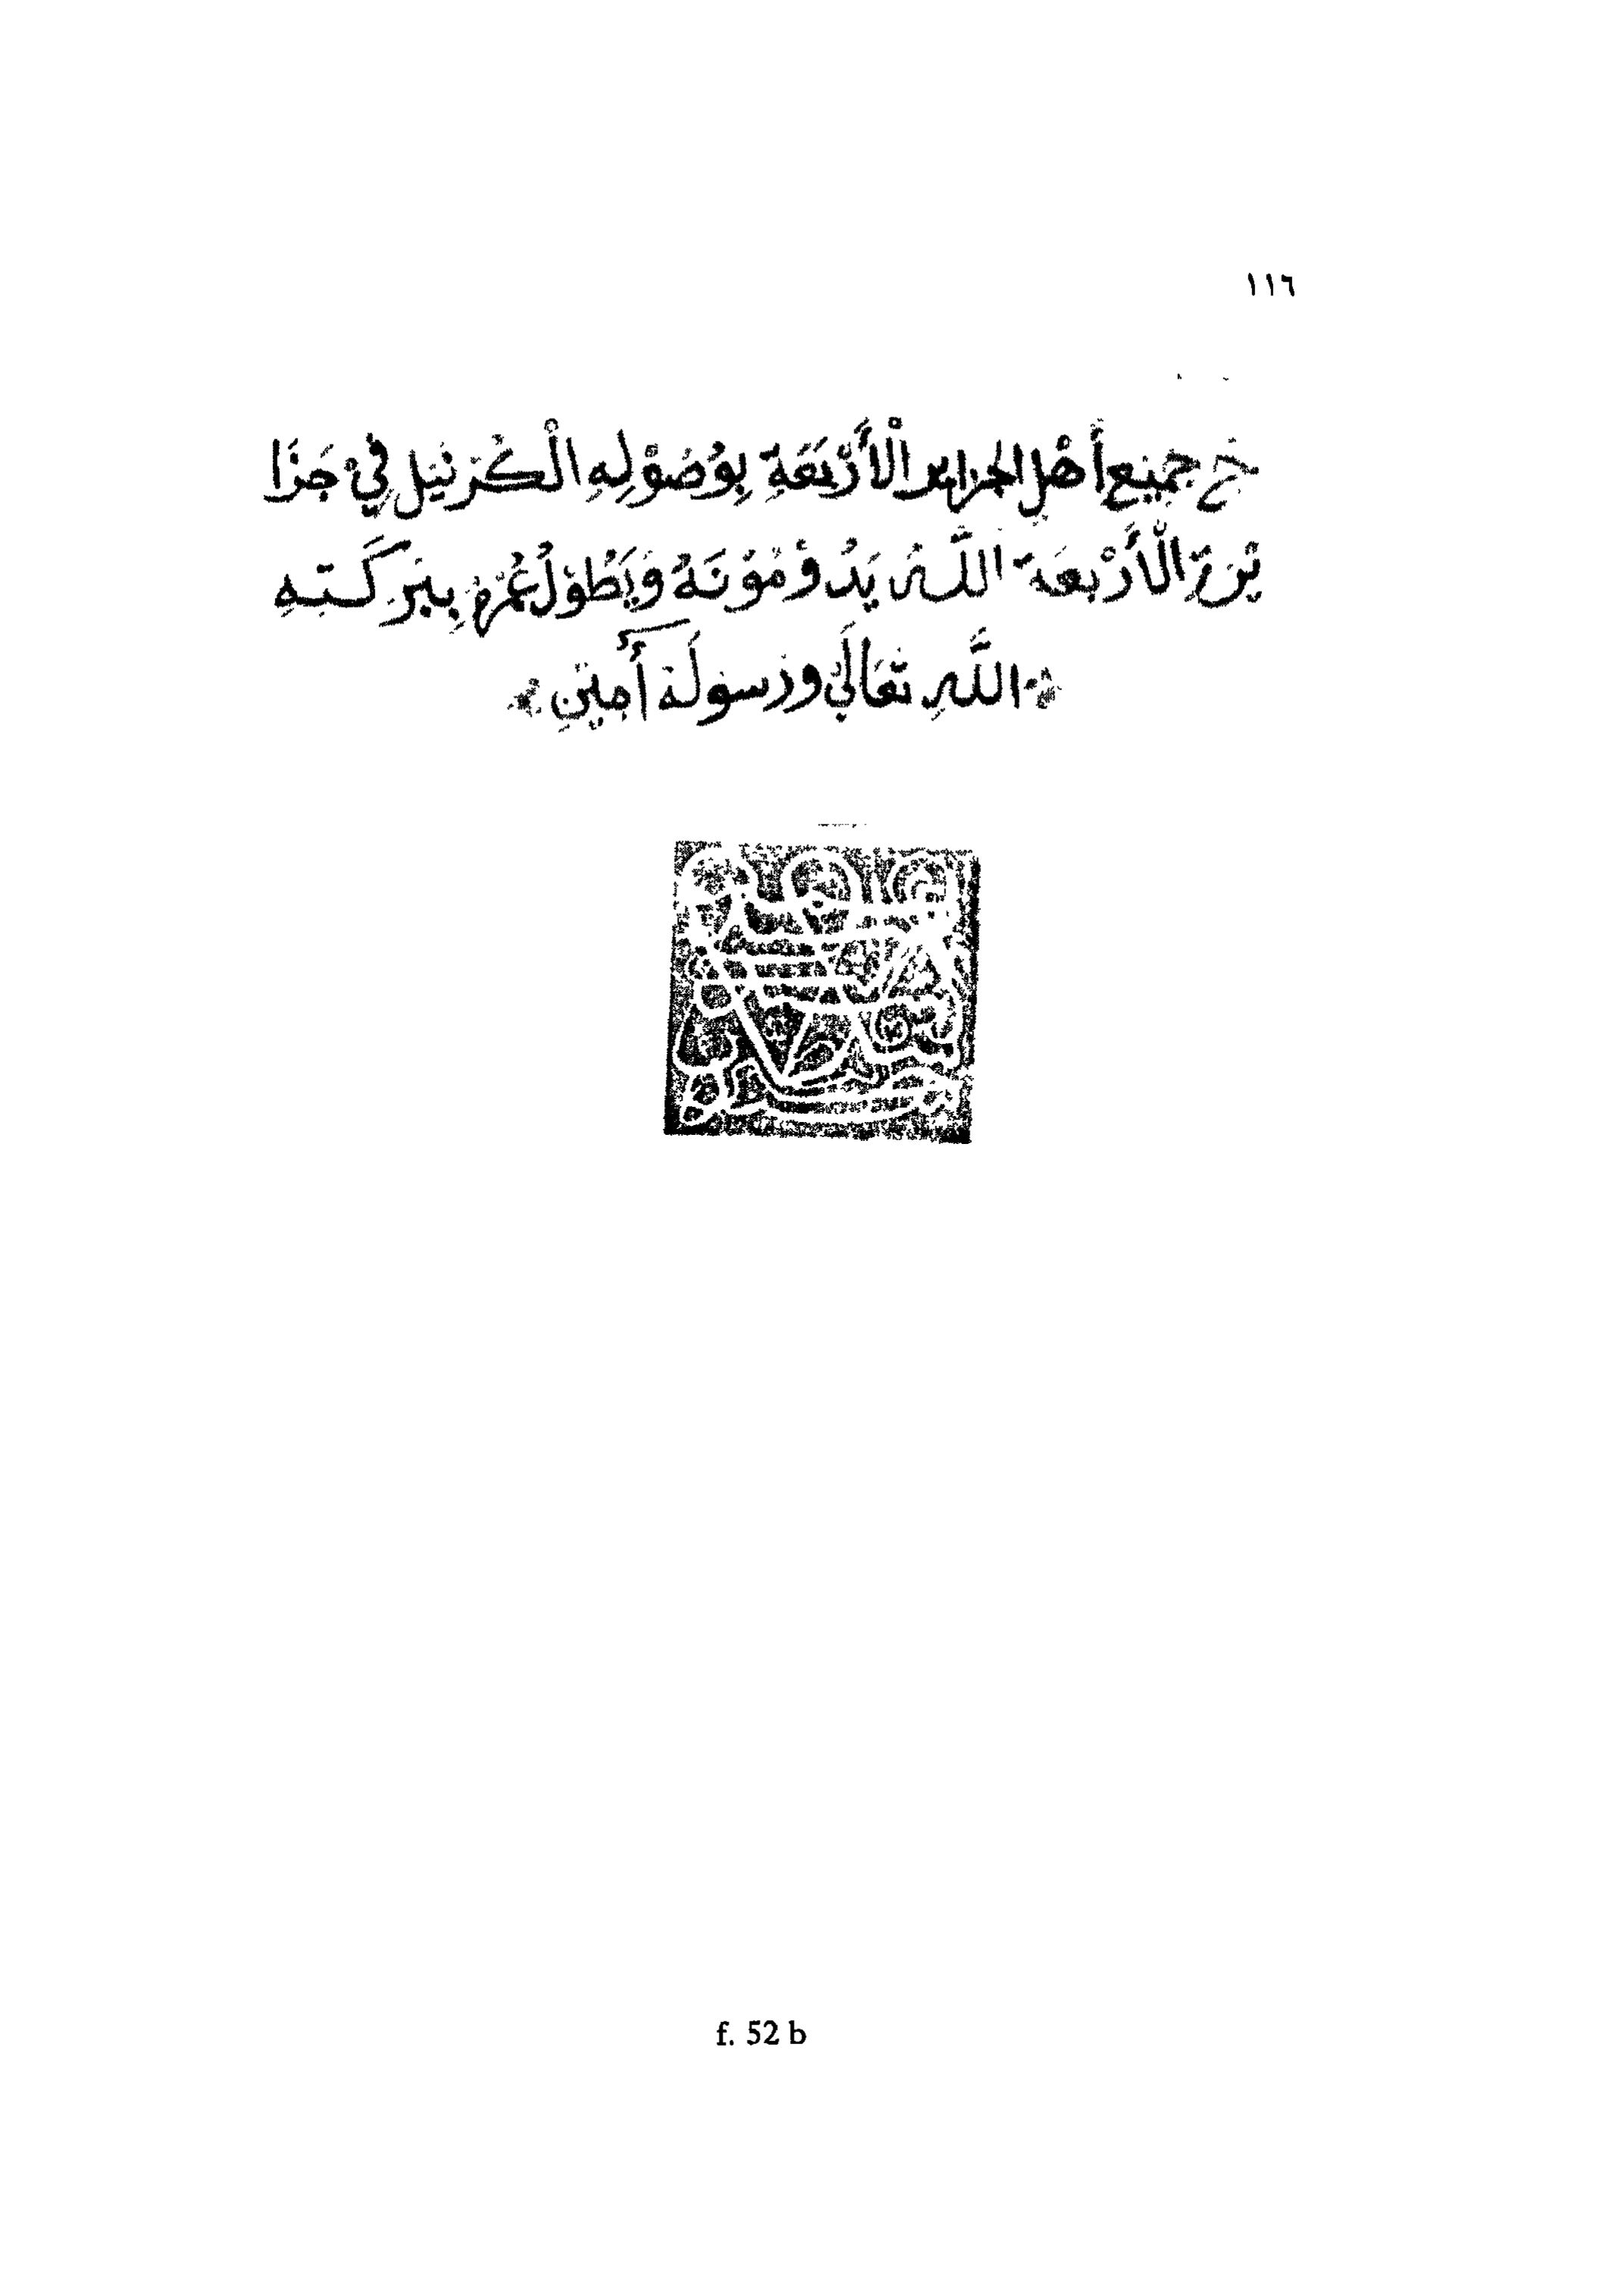 ١١٦
خ جَمِيْعِ أَهْلِ الجزاير الْأَرْبَعَةِ بِوُصُوْلِهِ الْكُرْنَيْل فِيْ جَزَا
يْرَةِ الْأَرْبَعَةَ اللَّهُ يَدُوْمُوْنَهُ وَيَطُوْلُ عُمْرُهُ بِبَرَكَتِهِ
اللَّهِ تَعَالَى وَرَسُوْلَهُ أَمِيْنِ
f. 52 b